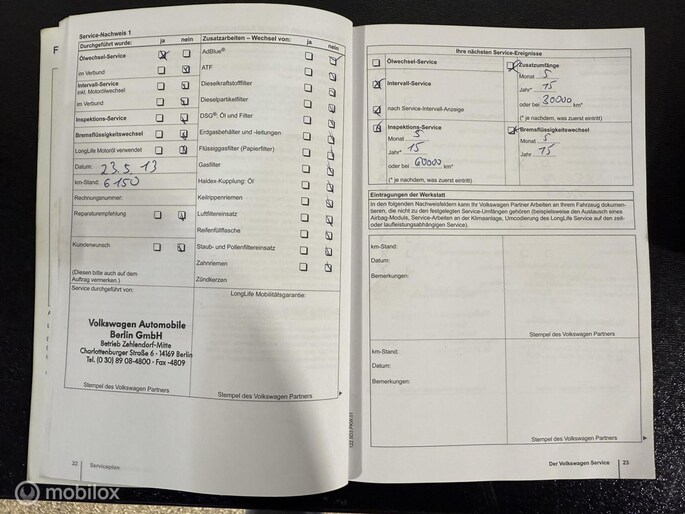 F
Service-Nachweis 1
Durchgeführt wurde: ja nein
Ölwechsel-Service
im Verbund
Intervall-Service
inkl. Motorölwechsel
im Verbund
Inspektions-Service
Bremsflüssigkeitswechsel
LongLife Motoröl verwendet
Datum: 23.5.13
km-Stand: 6150
Rechnungsnummer:
Reparaturempfehlung
Kundenwunsch
(Diesen bitte auch auf dem
Auftrag vermerken.)
Service durchgeführt von:
Volkswagen Automobile
Berlin GmbH
Betrieb Zehlendorf-Mitte
Charlottenburger Straße 6 · 14169 Berlin
Tel. (0 30) 89 08-4800 · Fax -4809
Stempel des Volkswagen Partners
Zusatzarbeiten – Wechsel von: ja nein
AdBlue®
ATF
Dieselkraftstofffilter
Dieselpartikelfilter
DSG®: Öl und Filter
Erdgasbehälter und -leitungen
Flüssiggasfilter (Papierfilter)
Gasfilter
Haldex-Kupplung: Öl
Keilrippenriemen
Luftfiltereinsatz
Reifenfüllflasche
Staub- und Pollenfiltereinsatz
Zahnriemen
Zündkerzen
LongLife Mobilitätsgarantie:
Stempel des Volkswagen Partners
22 Serviceplan
Ihre nächsten Service-Ereignisse
Ölwechsel-Service
Intervall-Service
nach Service-Intervall-Anzeige
Inspektions-Service
Monat 5
Jahr* 15
oder bei 60000 km*
(* je nachdem, was zuerst eintritt)
Zusatzumfänge
Monat 5
Jahr* 15
oder bei 30000 km*
(* je nachdem, was zuerst eintritt)
Bremsflüssigkeitswechsel
Monat 5
Jahr 15
Eintragungen der Werkstatt
In den folgenden Nachweisfeldern kann Ihr Volkswagen Partner Arbeiten an Ihrem Fahrzeug dokumen-
tieren, die nicht zu den festgelegten Service-Umfängen gehören (beispielsweise den Austausch eines
Airbag-Moduls, Service-Arbeiten an der Klimaanlage, Umcodierung des LongLife Service auf den zeit-
oder laufleistungsabhängigen Service).
km-Stand:
Datum:
Bemerkungen:
Stempel des Volkswagen Partners
km-Stand:
Datum:
Bemerkungen:
Stempel des Volkswagen Partners
Der Volkswagen Service 23
mobilox